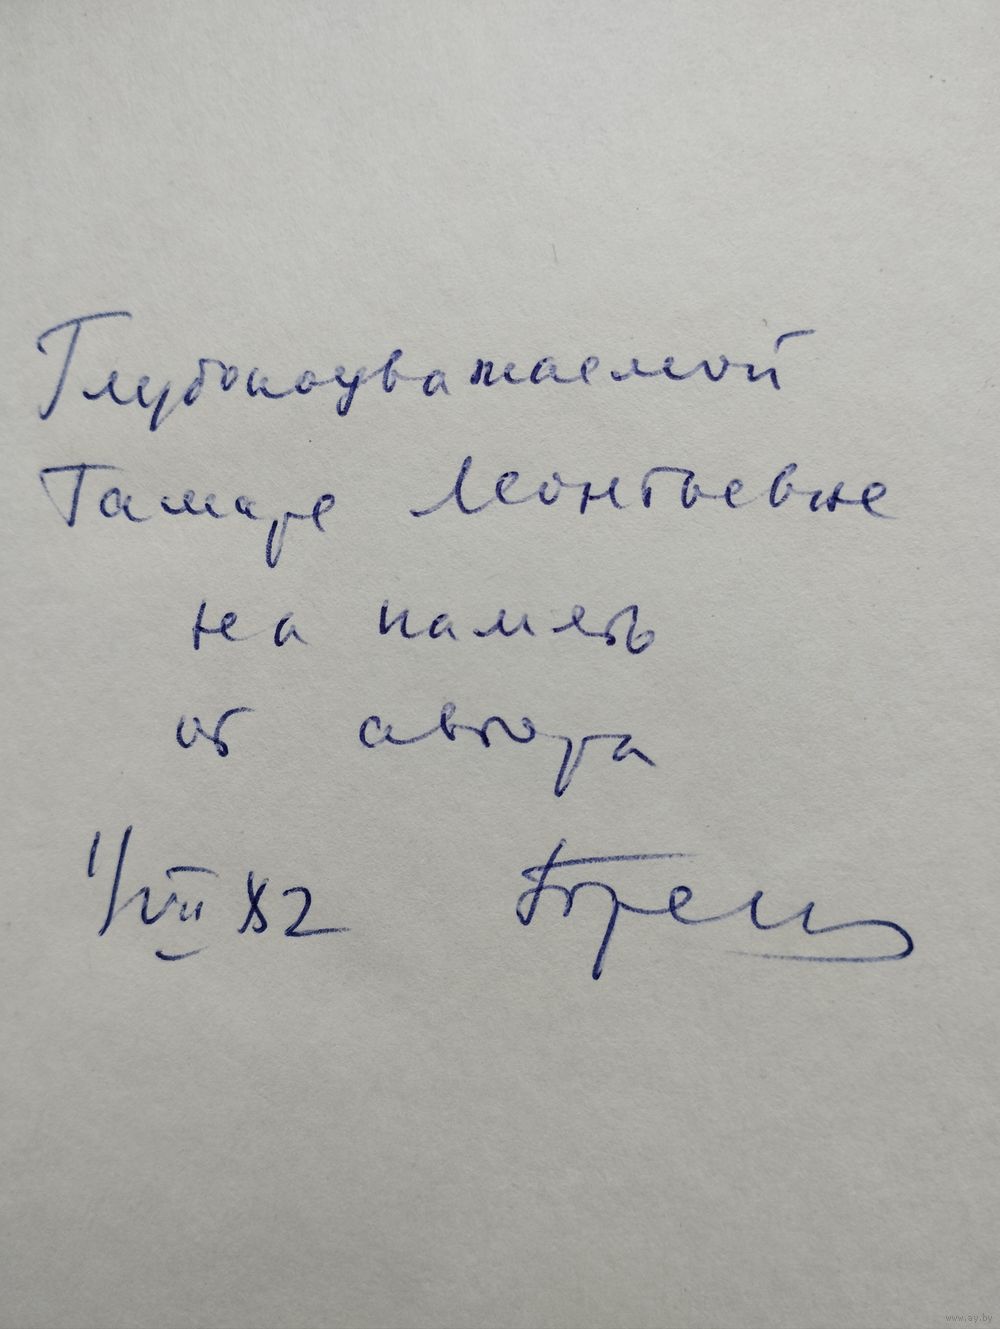 Глубокоуважаемой
Тамаре Леонтьевне
на память
от автора
1/VII 82
www.ay.by